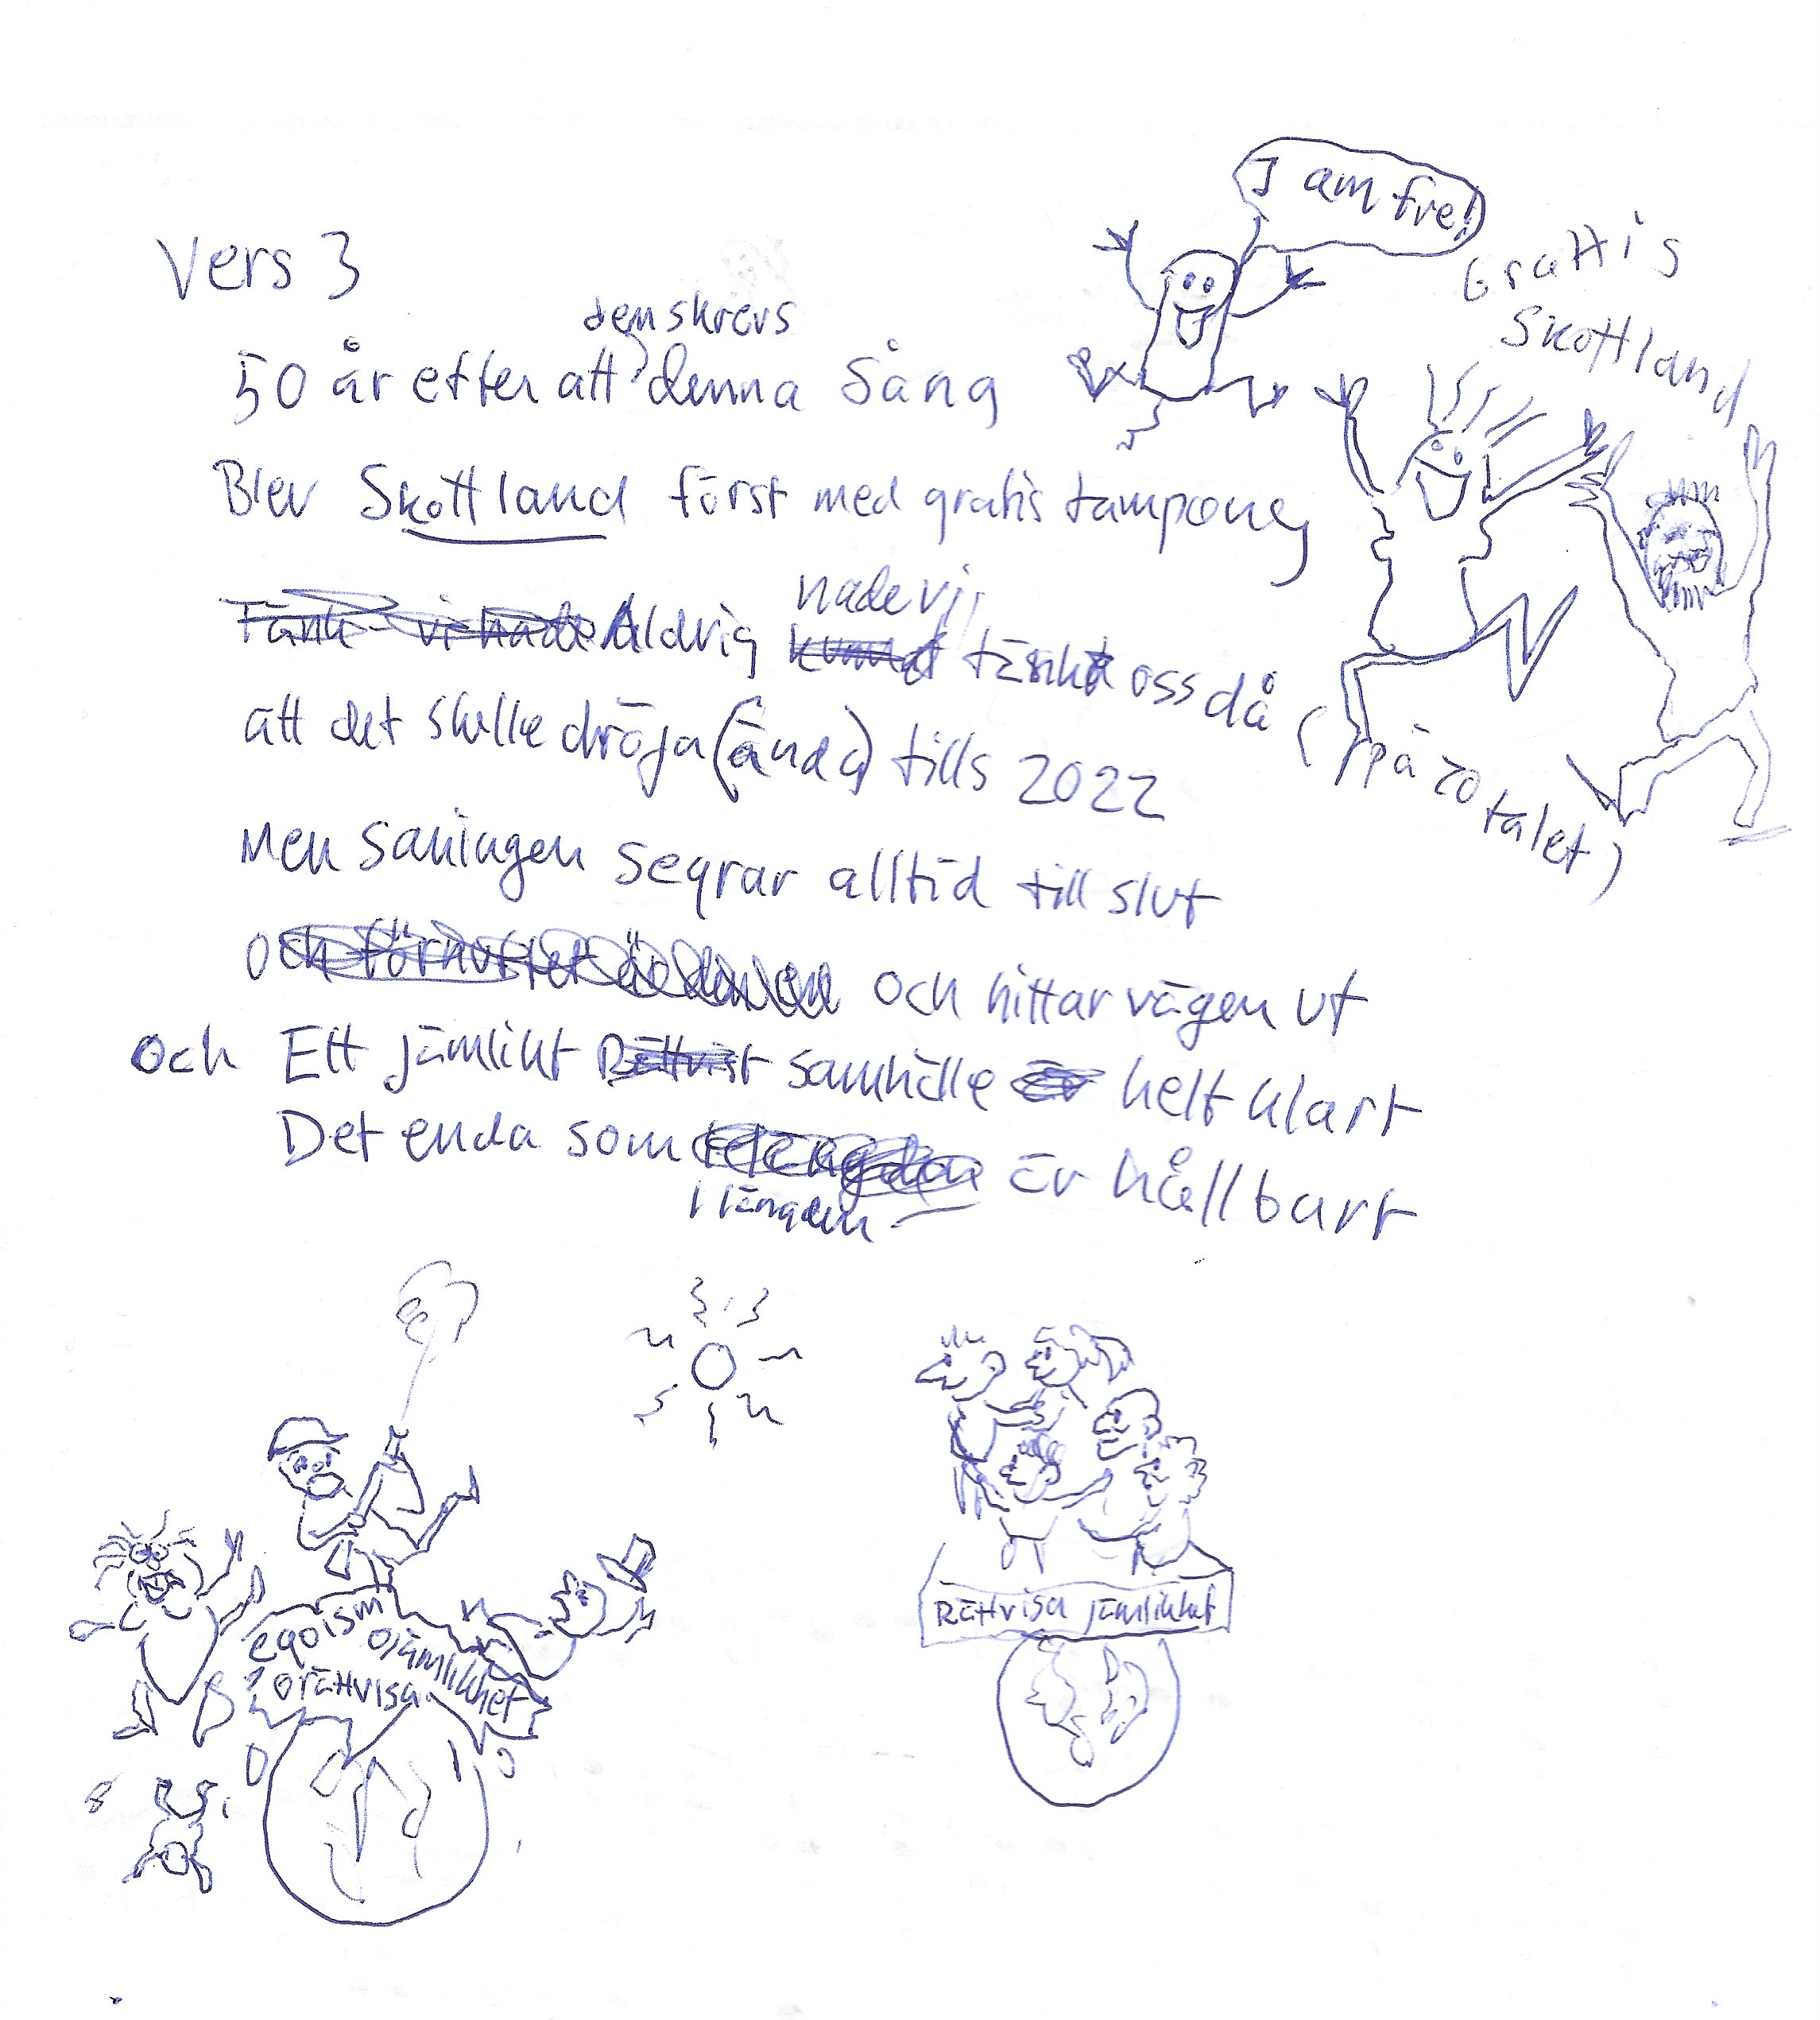 I am free!
Grattis
Skottland
Vers 3
dem skrevs
50 år efter att denna Sång
Blev Skottland först med gratis tampong
hade vi
Tänk vi hade Aldrig kunnat tänkt oss då (på 70 talet)
att det skulle dröja (ända) tills 2022
Men Saningen Segrar alltid till slut
och förnuftet och hittar vägen ut
och Ett jämlikt Rättvist samhälle är helt klart
Det enda som är hållbart
i längden
egoism
ojämlikhet
orättvisa
Rättvisa jämlikhet